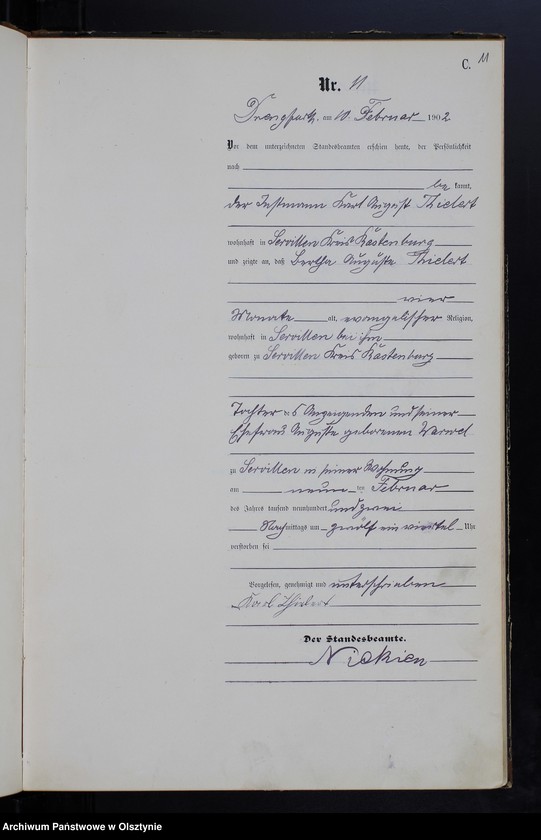 C. 11
Nr. 11
Drengfurth, am 10 Februar 1902
Vor dem unterzeichneten Standesbeamten erschien heute, der Persönlichkeit
nach
be kannt,
der Instmann Karl August Thielert
wohnhaft in Servillen Kreis Rastenburg
und zeigte an, daß Bertha Auguste Thielert
vier
Monate alt, evangelischer Religion,
wohnhaft in Servillen bei ihm
geboren zu Servillen Kreis Rastenburg
Tochter des Anzeigenden und seiner
Ehefrau Auguste geborenen
zu Servillen in seiner Wohnung
am neun ten Februar
des Jahres tausend neunhundert und zwei
Nachmittags um zwölf ein viertel Uhr
verstorben sei
Vorgelesen, genehmigt und unterschrieben
Karl Thielert
Der Standesbeamte.
Archiwum Państwowe w Olsztynie